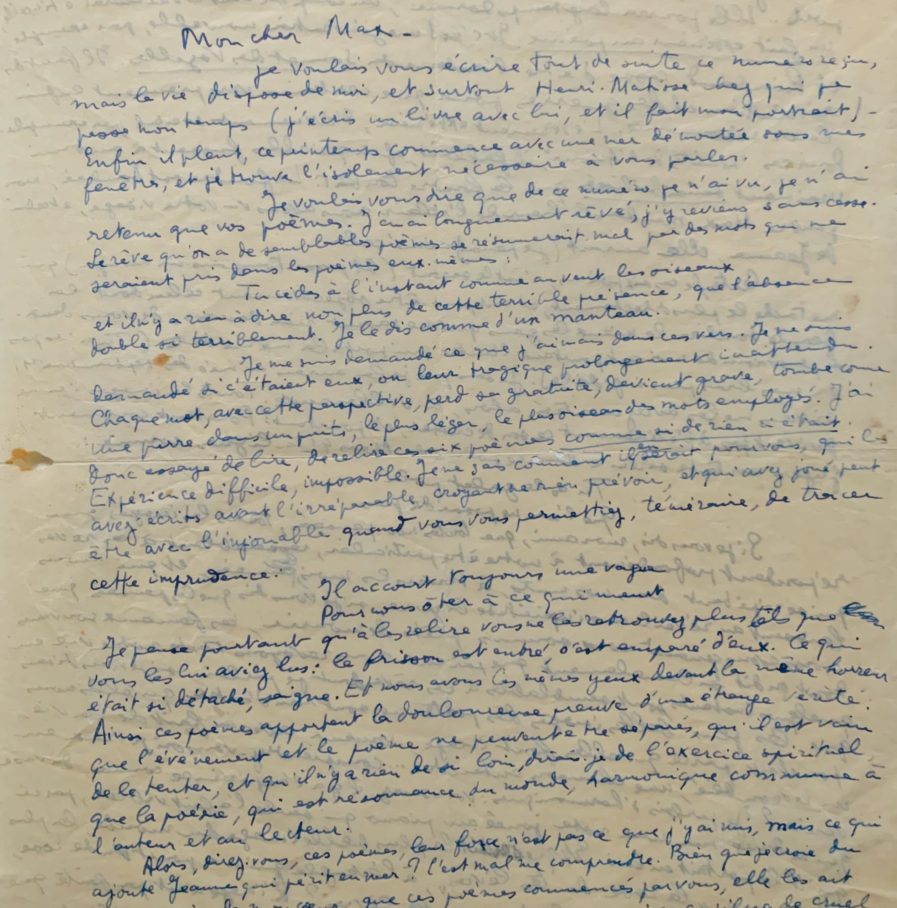 Mon cher Max -
Je voulais vous écrire tout de suite ce numéro reçu,
mais la vie dispose de moi, et surtout Henri-Matisse chez qui je
passe mon temps (j'écris un livre avec lui, et il fait mon portrait) -
Enfin il pleut, ce printemps commence avec une mer démontée sous mes
fenêtres, et je trouve l'isolement nécessaire à vous parler.
Je voulais vous dire que de ce numéro je n'ai vu, je n'ai
retenu que vos poèmes. J'en ai longuement rêvé, j'y reviens sans cesse.
Le rêve qu'on a de semblables poèmes se résumerait mal par des mots qui ne
seraient pris dans les poèmes eux-mêmes :
Tu cèdes à l'instant comme au vent les oiseaux
et il n'y a rien à dire non plus de cette terrible présence, que l'absence
double si terriblement. Je le dis comme d'un manteau.
Je me suis demandé ce que j'aimais dans ces vers. Je me suis
demandé si c'étaient eux, ou leur tragique prolongement inattendu.
Chaque mot, avec cette perspective, perd sa gratuité, devient grave, tombe comme
une pierre dans un puits, le plus léger, le plus oiseau des mots employés. J'ai
donc essayé de lire, de relire ces six poèmes comme si de rien n'était.
Expérience difficile, impossible. Je ne sais comment il en serait pour vous, qui les
avez écrits avant l'irréparable, croyant ne rien prévoir, et qui avez joué peut
être avec l'injouable quand vous vous permettiez, téméraire, de tracer
cette imprudence :
Il accourt toujours une vague
Pour nous ôter à ce qui meurt
Je pense pourtant qu'à les relire vous ne les retrouvez plus tels que
vous les lui aviez lus : le frisson est entré, s'est emparé d'eux. Ce qui
était si détaché, saigne. Et nous avons les mêmes yeux devant la même horreur
Ainsi ces poèmes apportent la douloureuse preuve d'une étrange vérité :
que l'événement et le poème ne peuvent être séparés, qu'il est vain
de le tenter, et qu'il n'y a rien de si loin, dirai-je de l'exercice spirituel
que la poésie, qui est résonance du monde, harmonique commune à
l'auteur et au lecteur.
Alors, direz-vous, ces poèmes, leur force n'est pas ce que j'y ai mis, mais ce qui
ajoute Jeanne qui périt en mer ? C'est mal me comprendre. Bien que je croie du
que ces poèmes commencés par vous, elle les ait
de cruel